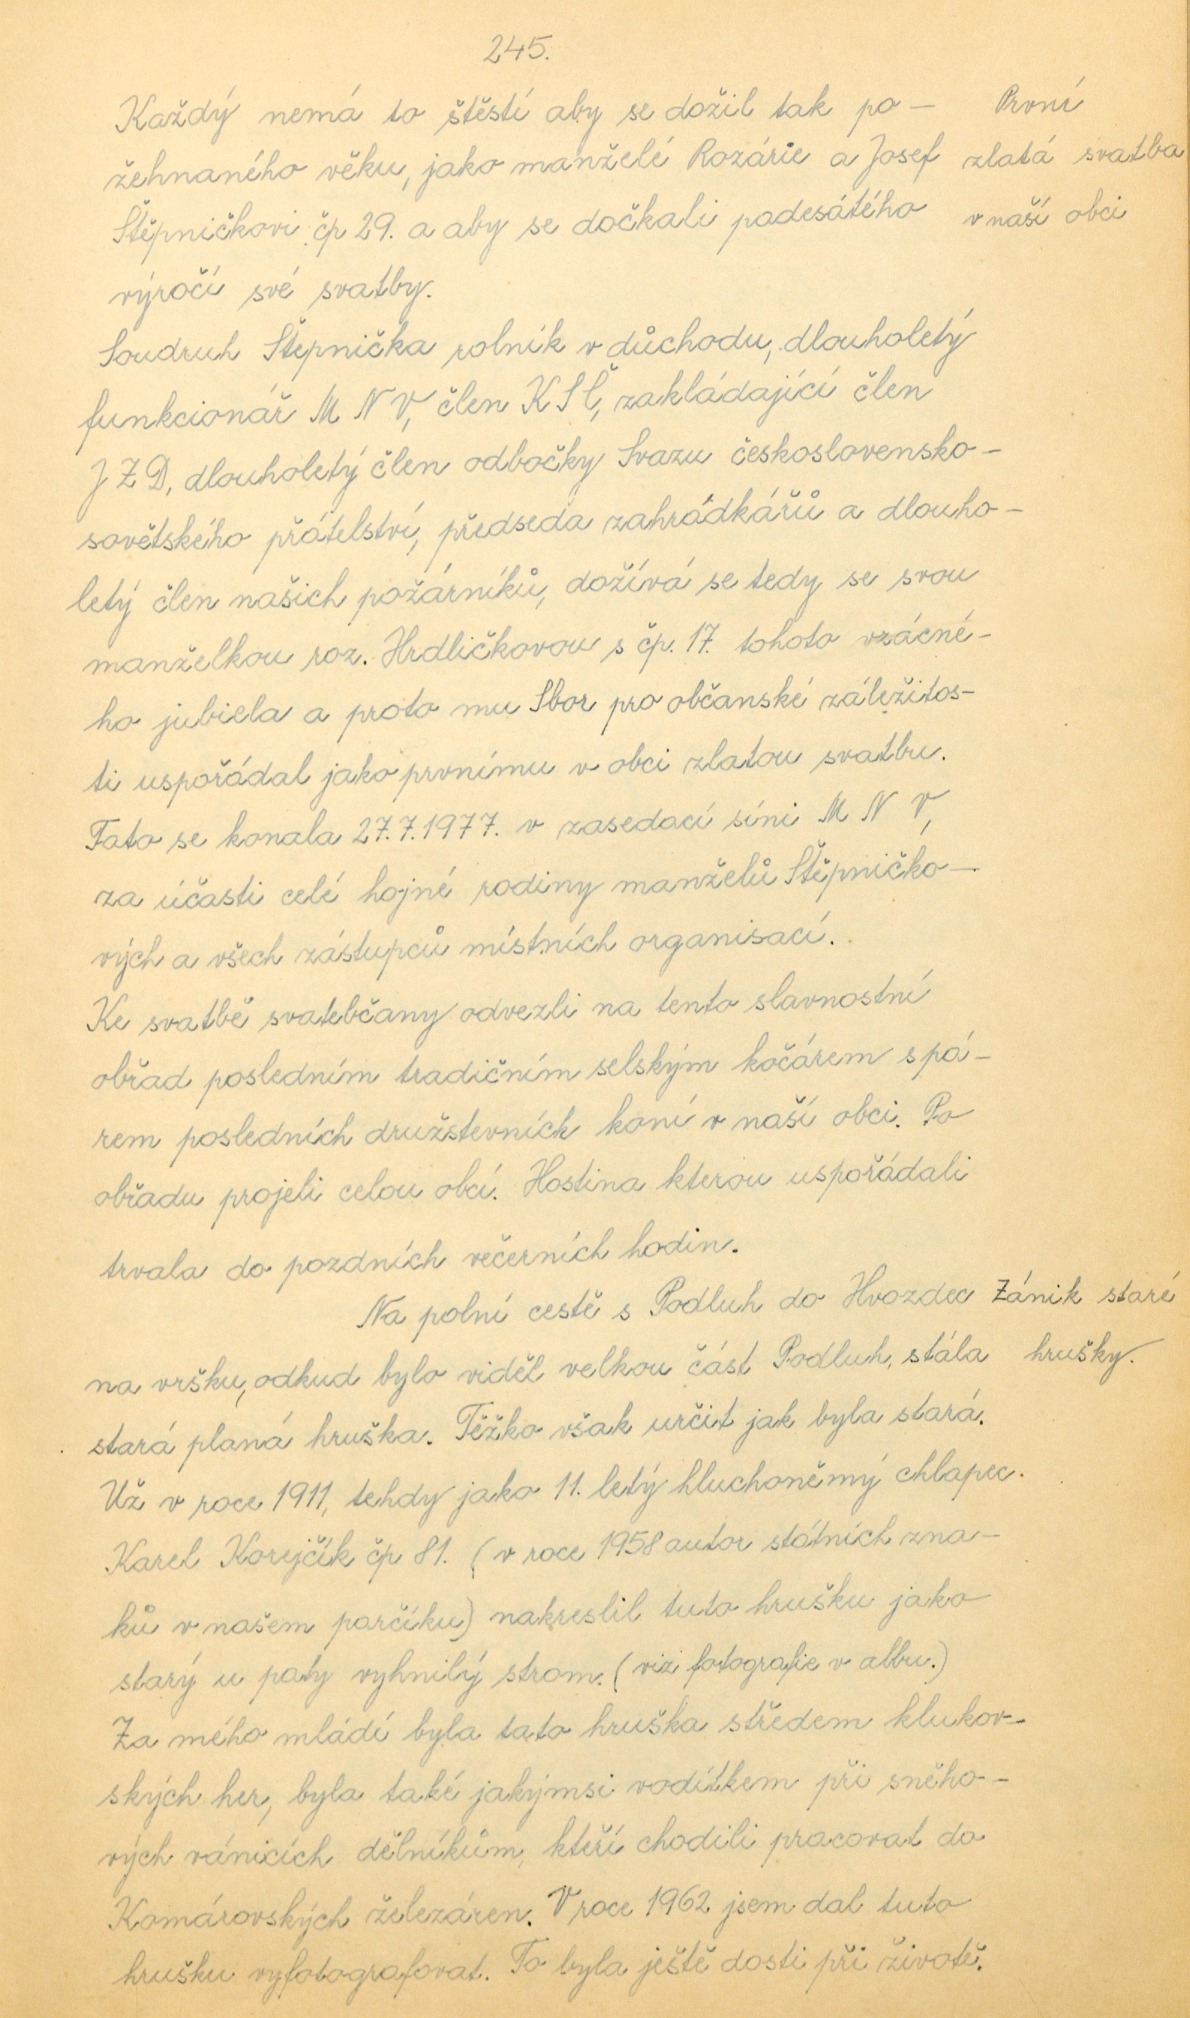 245.
Každý nemá to štěstí aby se dožil tak po-
žehnaného věku, jako manželé Rozárie a Josef
Štěpničkovi čp 29. a aby se dočkali padesátého
výročí své svatby.
První
zlatá svatba
v naší obci
Soudruh Štěpnička rolník v důchodu, dlouholetý
funkcionář M N V, člen K S Č, zakládající člen
J Z D, dlouholetý člen odbočky Svazu československo-
sovětského přátelství, předseda zahrádkářů a dlouho-
letý člen našich požárníků, dožívá se tedy se svou
manželkou roz. Hrdličkovou s čp. 17. tohoto vzácné-
ho jubiela a proto mu Sbor pro občanské záležitos-
ti uspořádal jako prvnímu v obci zlatou svatbu.
Tato se konala 27.7.1977. v zasedací síni M N V,
za účasti celé hojné rodiny manželů Štěpničko-
vých a všech zástupců místních organisací.
Ke svatbě svatebčany odvezli na tento slavnostní
obřad posledním tradičním selským kočárem s pá-
rem posledních družstevních koní v naší obci. Po
obřadu projeli celou obcí. Hostina kterou uspořádali
trvala do pozdních večerních hodin.
Na polní cestě s Podluh do Hvozdec
na vršku, odkud bylo viděl velkou část Podluh, stála
stará planá hruška. Těžko však určit jak byla stará.
Zánik staré
hrušky.
Už v roce 1911, tehdy jako 11. letý hluchoněmý chlapec.
Karel Korejčík čp 81. (v roce 1958 autor státních zna-
ků v našem parčíku) nakreslil tuto hrušku jako
starý u paty vyhnilý strom. (viz fotografie v albu.)
Za mého mládí byla tato hruška středem klukov-
ských her, byla také jakýmsi vodítkem při sněho-
vých vánicích dělníkům, kteří chodili pracovat do
Komárovských železáren. V roce 1962 jsem dal tuto
hrušku vyfotografovat. To byla ještě dosti při životě.